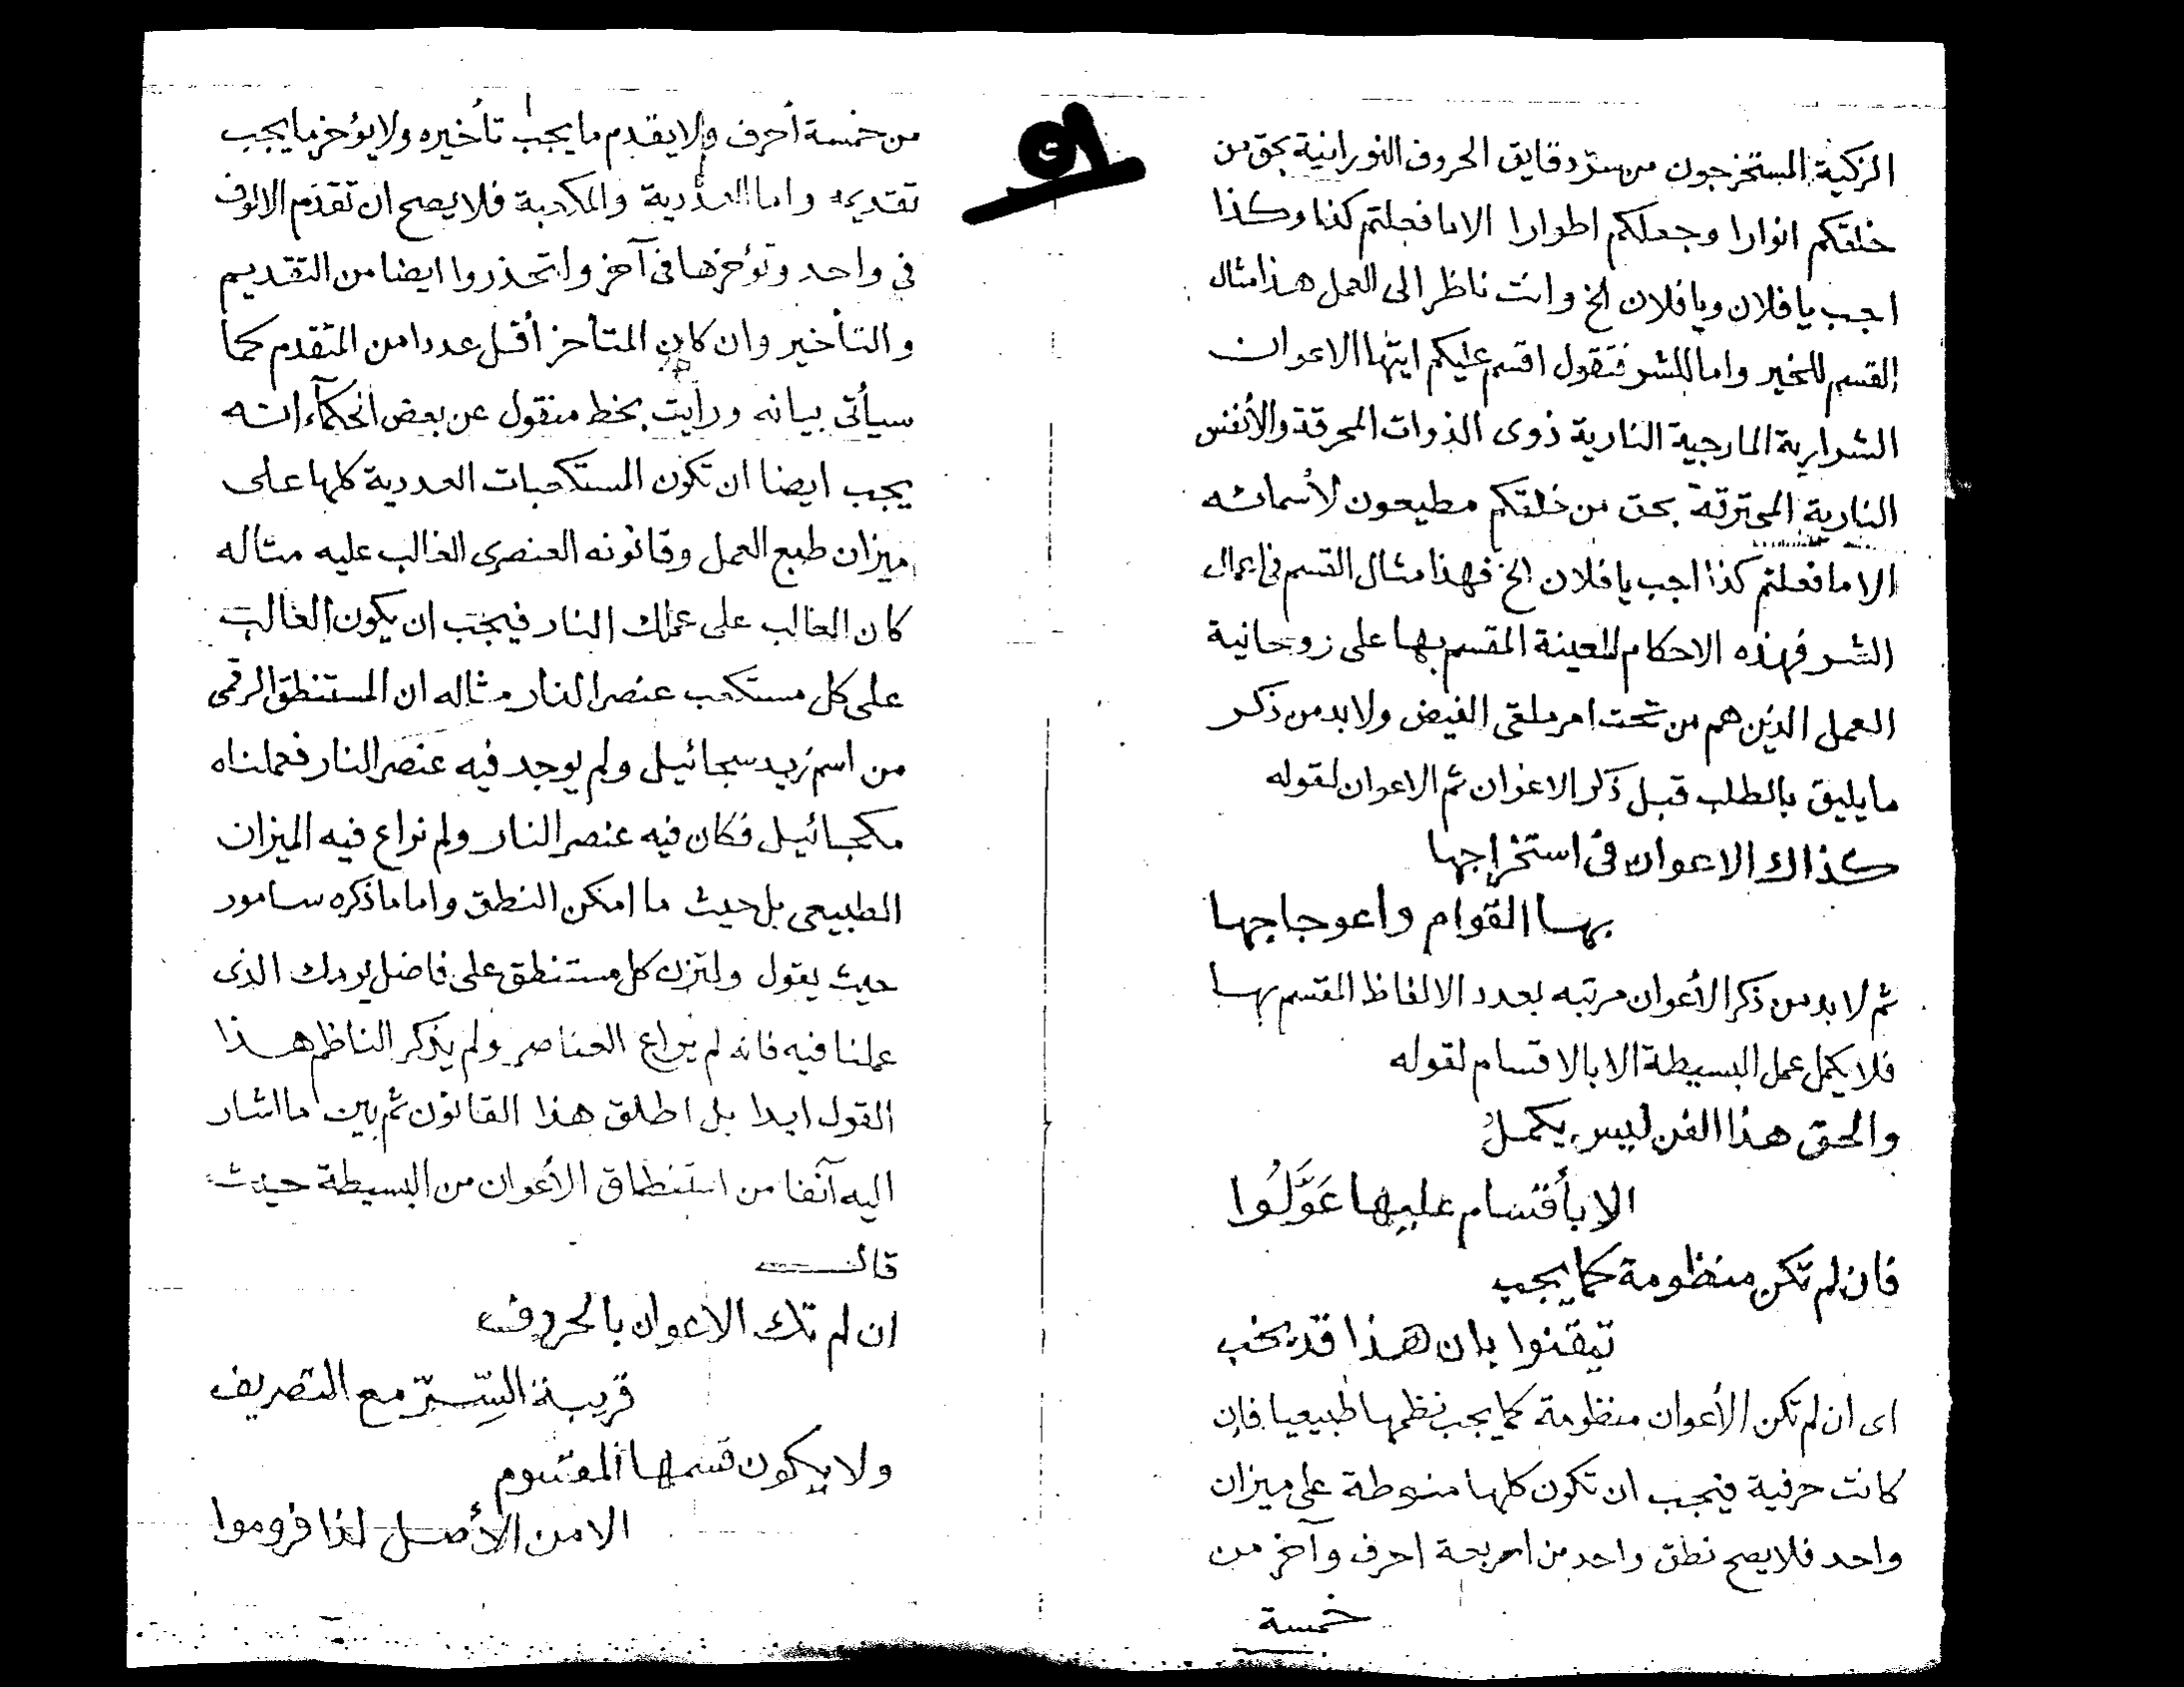 الزكية المستخرجون من سر دقايق الحروف النورانية بحق من
خلقكم انوارا وجعلكم اطوارا الا ما فعلتم كذا وكذا
اجب يا فلان ويا فلان الخ وانت ناظر الى العمل هذا مثال
القسم للخير واما للشر فتقول اقسم عليكم ايتها الاعوان
الشرارية المارجية النارية ذوى الذوات المحرقة والأنفس
النارية المحترقة بحق من خلقكم مطيعون لأسمائه
الا ما فعلتم كذا اجب يا فلان الخ فهذا مثال القسم فى اعمال
الشر فهذه الاحكام المعينة المقسم بها على روحانية
العمل الذين هم من تحت امر ملقى الفيض ولا بد من ذكر
ما يليق بالطلب قبل ذكر الاعوان ثم الاعوان لقوله
كذاك الاعوان فى استخراجها
بها القوام واعوجاجها
ثم لا بد من ذكر الأعوان مرتبه بعدد الالفاظ المقسم بها
فلا يكمل عمل البسيطة الا بالاقسام لقوله
والحق هذا الفن ليس يكملُ
الا بأقسام عليها عَوَّلُوا
فان لم تكن منظومة كما يجب
تيقنوا بان هذا قد يخب
اى ان لم تكن الأعوان منظومة كما يجب نظمها طبيعيا فان
كانت حرفية فيجب ان تكون كلها منوطة على ميزان
واحد فلا يصح نطق واحد من اربعة احرف وآخر من
خمسة
من خمسة أحرف ولا يقدم ما يجب تأخيره ولا يؤخر ما يجب
تقديمه واما العددية والمكعبة فلا يصح ان تقدم الالوف
فى واحد وتؤخرها فى آخر واتحذروا ايضا من التقديم
والتأخير وان كان المتأخر أقل عددا من المتقدم كما
سيأتى بيانه ورأيت بخط منقول عن بعض الحكمآء انه
يجب ايضا ان تكون المستكعبات العددية كلها على
ميزان طبع العمل وقانونه العنصرى الغالب عليه مثاله
كان الغالب على عملك النار فيجب ان يكون الغالب
على كل مستكعب عنصر النار مثاله ان المستنطق الرقمى
من اسم زيد سجائيل ولم يوجد فيه عنصر النار فعملناه
مكجائيل فكان فيه عنصر النار ولم نراع فيه الميزان
الطبيعى بل حيث ما امكن النطق واما ما ذكره سامور
حيث يقول ولتزن كل مستنطق على فاضل يومك الذى
عملنا فيه فانه لم يراع العناصر ولم يذكر الناظم هذا
القول ابدا بل اطلق هذا القانون ثم بين ما اشار
اليه آنفا من استنطاق الأعوان من البسيطة حيث
قال
ان لم تك الاعوان بالحروف
قريبة السِّرّ مع التصريف
ولا يكون قسمها المقسوم
الا من الأصل لذا فروموا